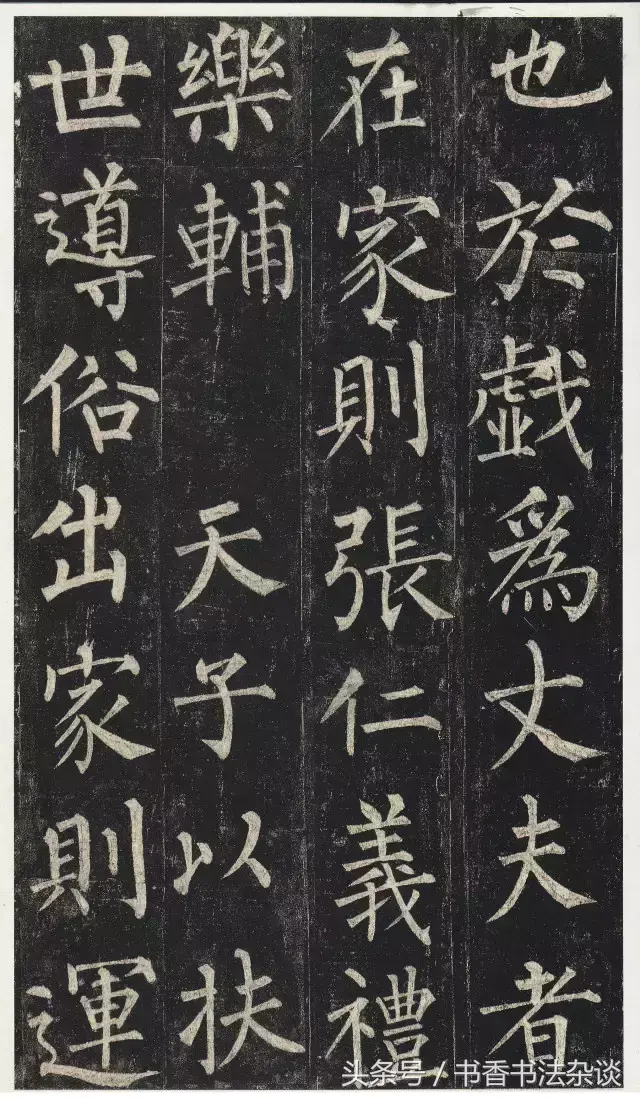 也於戲爲丈夫者
在家則張仁義禮
樂輔天子以扶
世導俗出家則運
头条号 / 书香书法杂谈